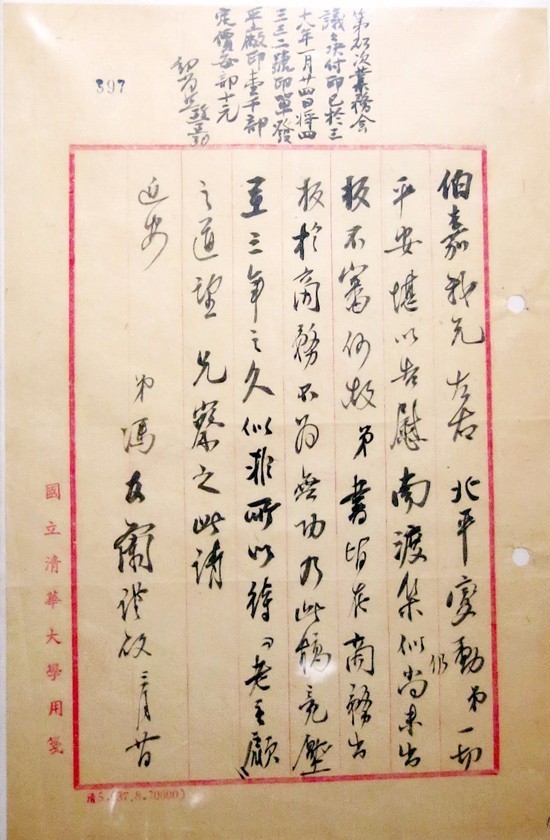 次業務会
議決付印已於三
十八年一月廿四日將四
三三二號印單發
平廠印壹千部
定價每部十元
397
伯嘉我兄左右北平變動弟仍一切
平安堪以告慰南渡集似尚未出
版不審何故弟書皆在商務出
版於商務不為無功乃此稿竟壓
至三年之久似非所以待「老主顧」
之道望兄察之此請
近安
弟馮友蘭謹啟 三月廿日
國立清華大學用箋
清5.(37.8.20000)